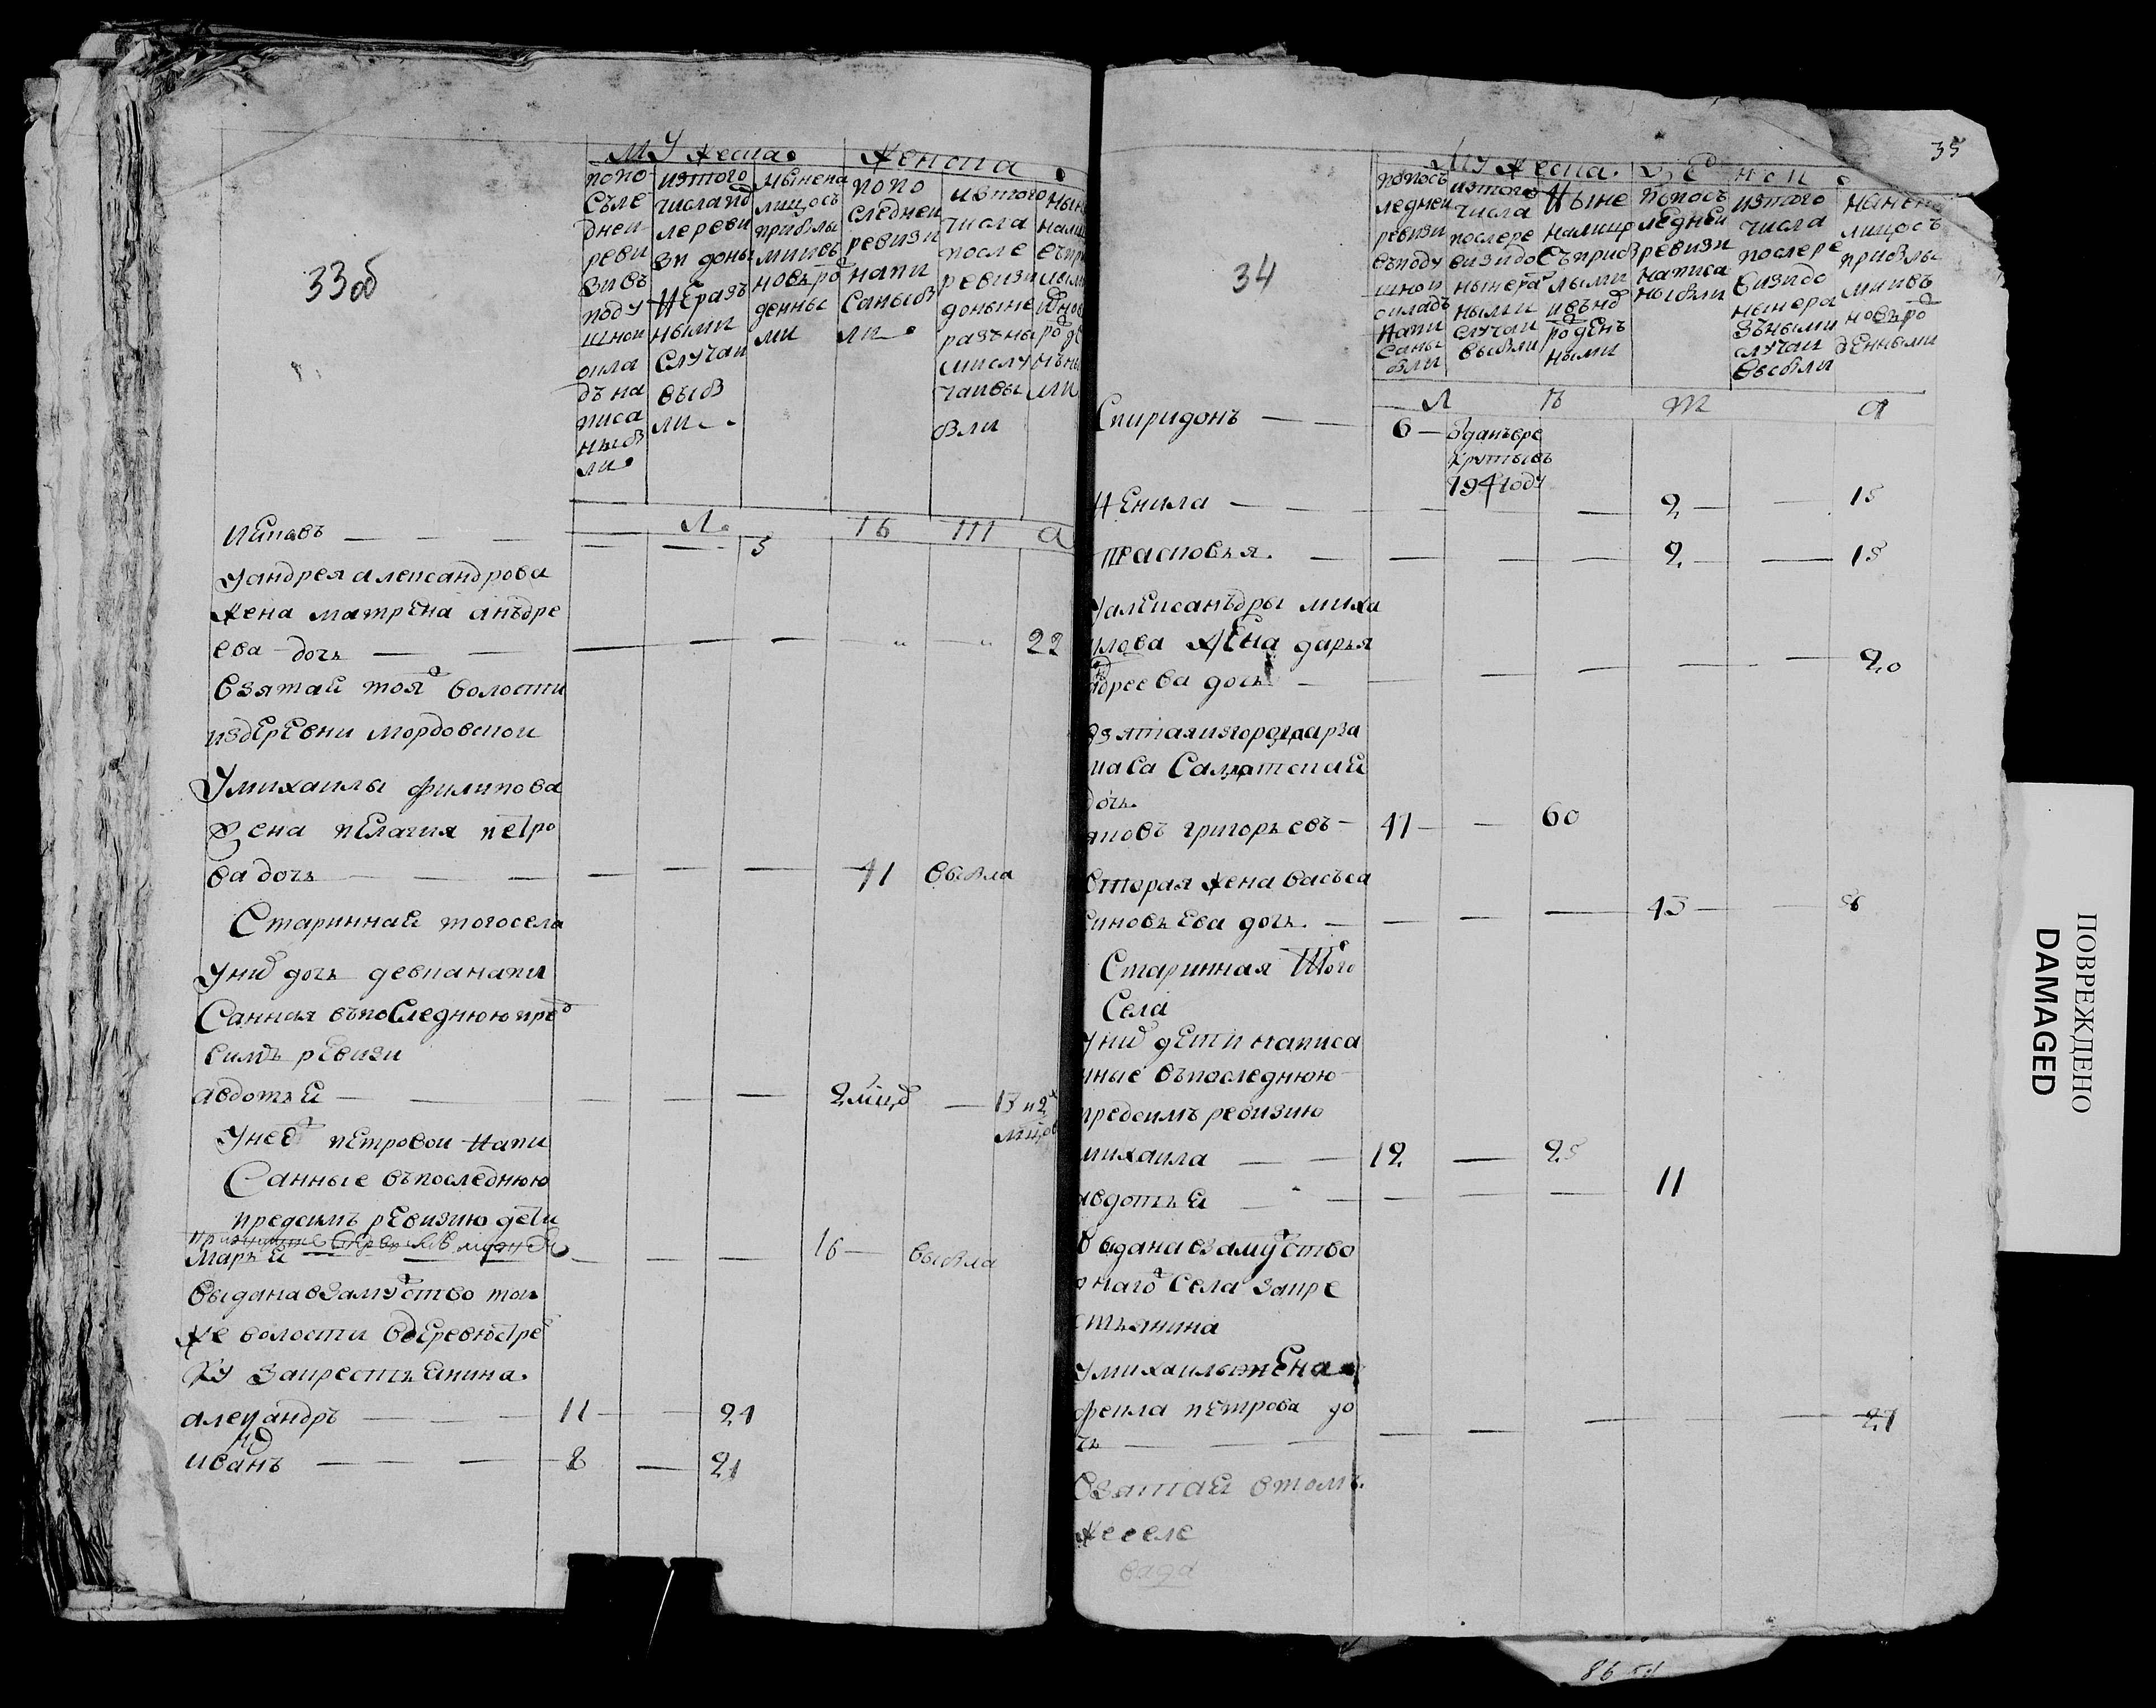 33 об
мужеска
женска
попо
съле
дней
реви
зи въ
поду
шной
окла
дъ на
писа
ны бы
ли
изтого
числа по
ле реви
зи доны
не разъ
ными
случаи
выбы
ли
ныне на
лицо съ
прибылы
ми и въ
новъ ро
денны
ми
попо
следней
ревизи
напи
саны бы
ли
изтого
числа
после
ревизи
доныне
разъны
ми слу
чаи вы
были
лѣта
иаковъ — — — — — 5
у андрея александрова
жена матрена анъдре
ева дочь — — — — — 22
взятай тоя волости
издеревни мордовской
у михаилы филипова
жена пелагия петро
ва дочь — — — — — 41 выбыла
стариннай того села
у них дочь девка напи
санная въпоследнюю пред
симъ ревизи
авдотьей — — — — 2
у неё петровой напи
санные въпоследнюю
предсимъ ревизию дети
марьей — — — 16 — выбыла
выдана взамуство той
же волости вдеревню
за крестьенина
александръ — — — 11 — 24
иванъ — — — 8 — 21
35
34
мужеска
женск
попосъ
ледней
ревизи
въподу
шной
окладъ
напи
саны
были
изтого
числа
после ре
визи до
ныне ра
ными
случаи
выбыли
ныне
налицо
съприбы
лыми
и въно
роденъ
ными
попосъ
ледней
ревизи
написа
ны были
изтого
числа
после ре
визи до
ныне ра
зъными
случаи
выбыли
ныне на
лицо съ
прибылы
ми и въ
новъ ро
денными
лѣта
спиридонъ — — 6 — отданъ вре
круты въ
794 году
ненила — — — — 2 — — 15
прасковья — — — — 2 — — 15
у алексанъдры миха
илова жена дарья
андреева дочь — — — — — 20
взятая из города арза
маса салдатскай
дочь
яковъ григорьевъ — 41 — — 60
вторая жена васъса
зиновьева дочь — — — — 43 — — 58
старинная того
села
у них дети написа
ные въпоследнюю
предсимъ ревизию
михаила — — 12 — 25
авдотьей — — — — 11
выдана взамуство
оного села за кре
стьянина
у михаилы жена
фекла петрова до
чь — — — — — 27
взятай втомъ
же селе
ПОВРЕЖДЕНО
DAMAGED